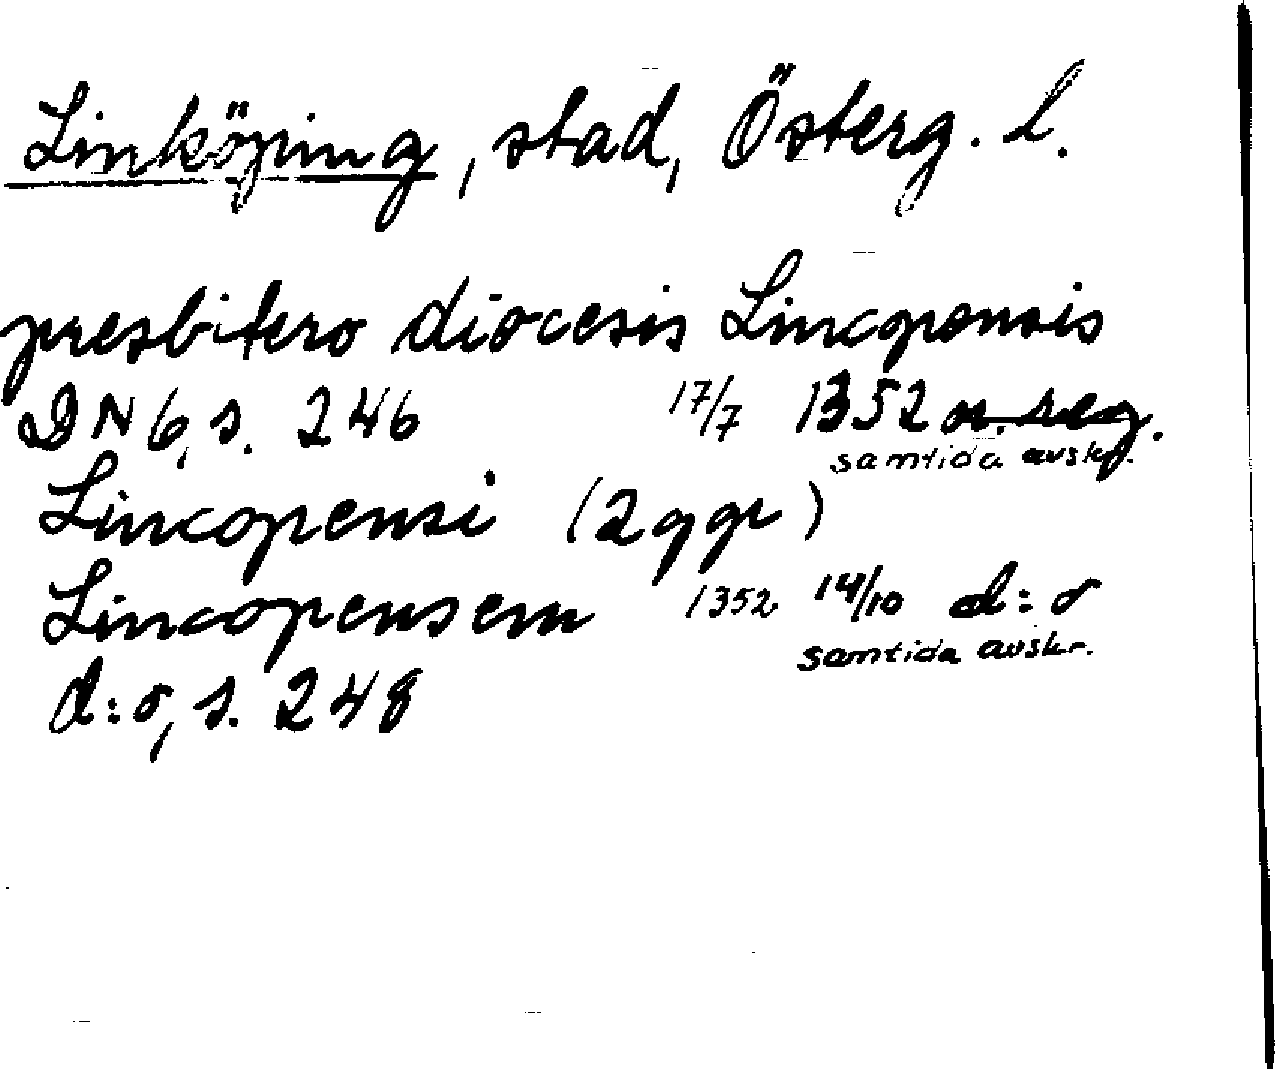 Linköping, stad, Österg. l.
presbitero diocesis Lincopensis
DN 6, s. 246 17/7 1352 o. reg.
samtida avskr.
Lincopensi (2 ggr)
Lincopensem 1352 14/10 d:o
samtida avskr.
d:o, s. 248